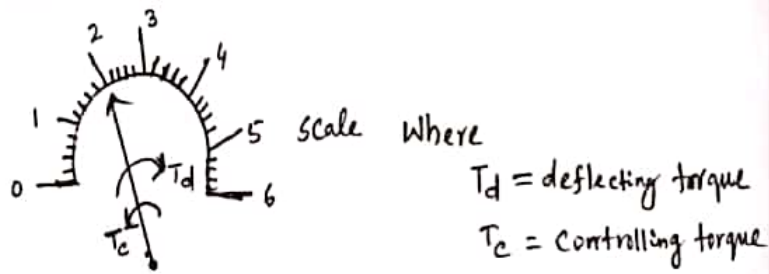 0 1 2 3 4 5 6
T_d
T_c
scale where
T_d = deflecting torque
T_c = Controlling torque